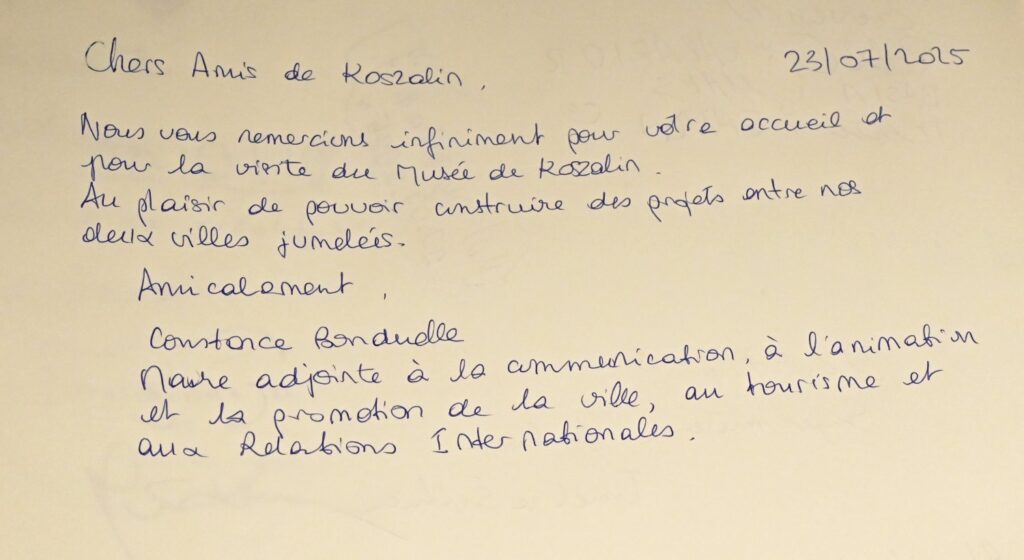 Chers Amis de Koszalin, 23/07/2025
Nous vous remercions infiniment pour votre accueil et
pour la visite du Musée de Koszalin.
Au plaisir de pouvoir construire des projets entre nos
deux villes jumelées.
Amicalement,
Constance Bonduelle
Maire adjointe à la communication, à l'animation
et la promotion de la ville, au tourisme et
aux Relations Internationales.